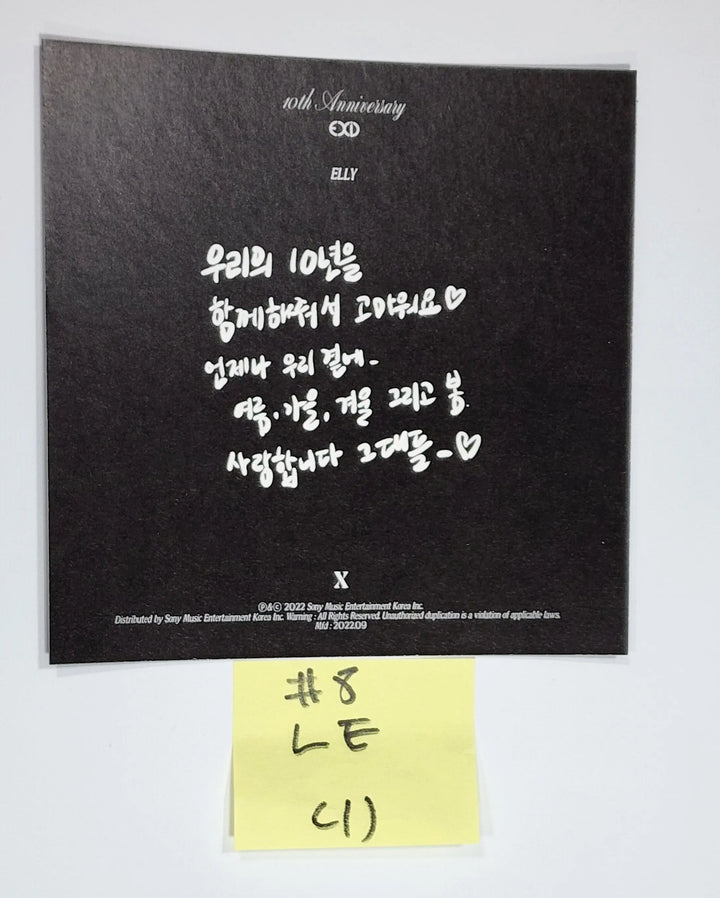 10th Anniversary
EXID
ELLY
우리의 10년을
함께해줘서 고마워요♡
언제나 우리 곁에-
여름, 가을, 겨울 그리고 봄.
사랑합니다 그대들-♡
X
Ⓟ&© 2022 Sony Music Entertainment Korea Inc.
Distributed by Sony Music Entertainment Korea Inc. Warning : All Rights Reserved. Unauthorized duplication is a violation of applicable laws.
Mfd : 2022.09
#8
LE
(1)